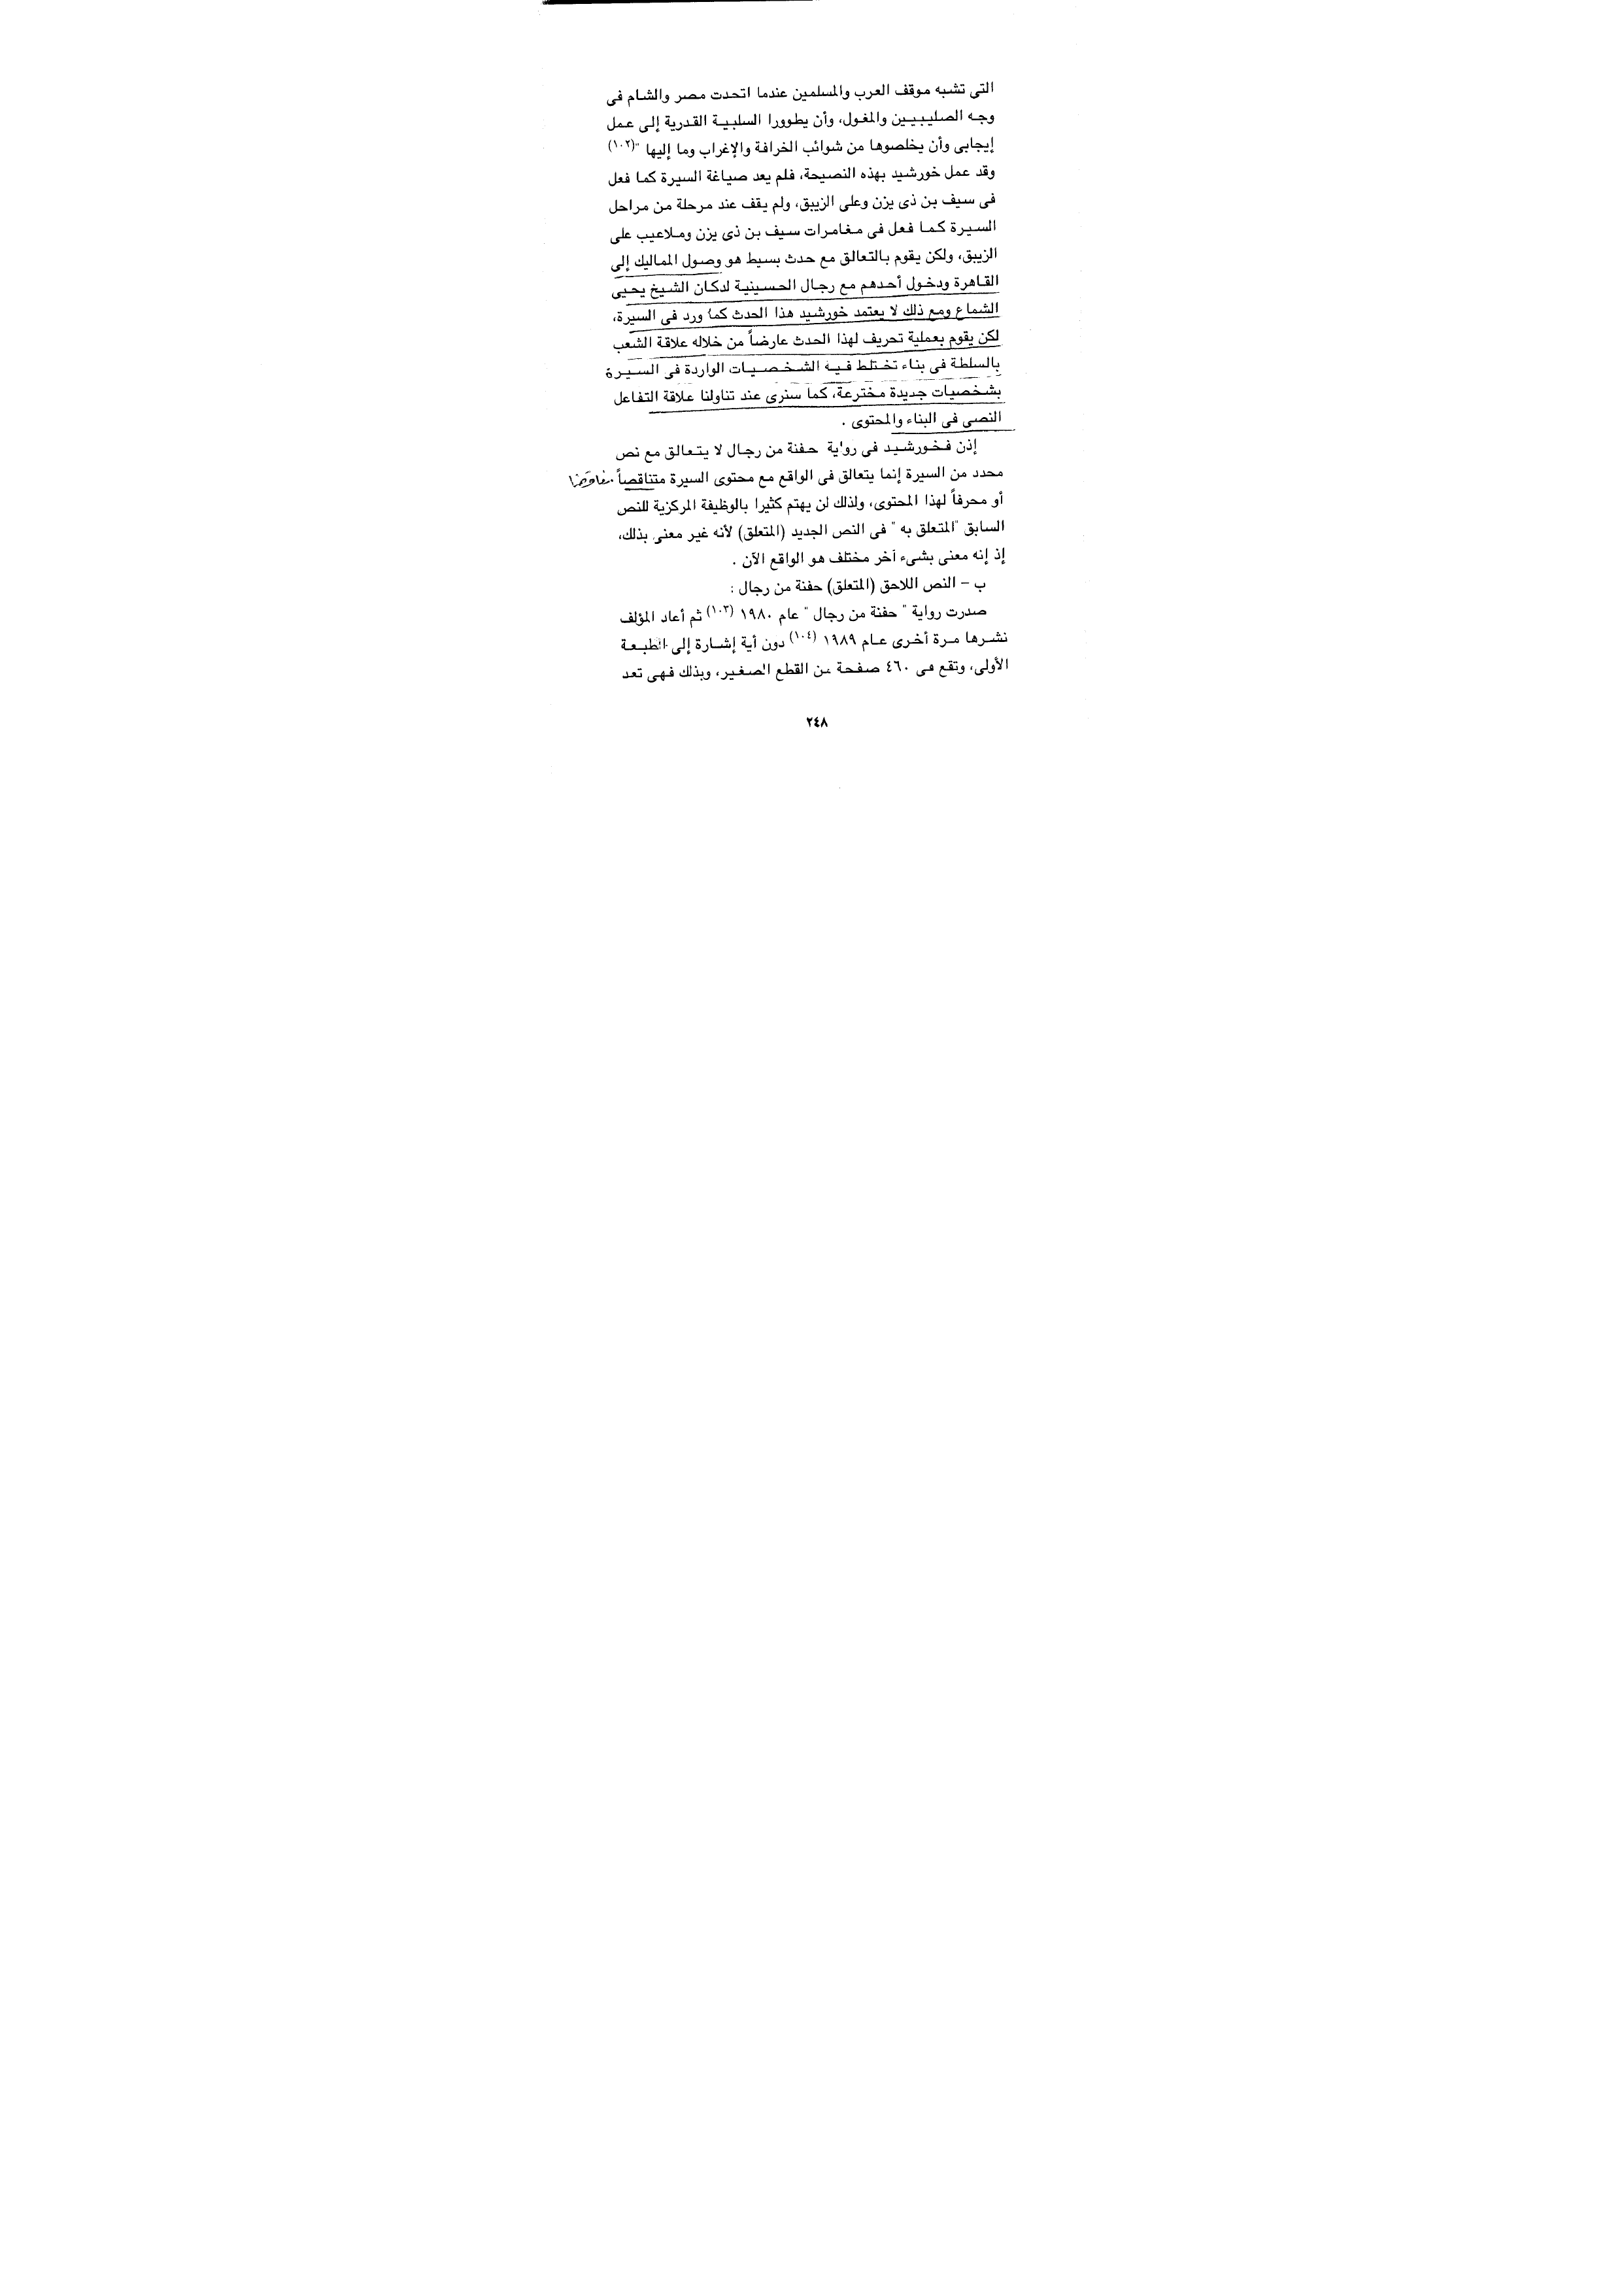 التى تشبه موقف العرب والمسلمين عندما اتحدت مصر والشام فى
وجه الصليبيين والمغول، وأن يطوورا السلبية القدرية إلى عمل
إيجابى وأن يخلصوها من شوائب الخرافة والإغراب وما إليها "(١٠٢)
وقد عمل خورشيد بهذه النصيحة، فلم يعد صياغة السيرة كما فعل
فى سيف بن ذى يزن وعلى الزيبق، ولم يقف عند مرحلة من مراحل
السيرة كما فعل فى مغامرات سيف بن ذى يزن وملاعيب على
الزيبق، ولكن يقوم بالتعالق مع حدث بسيط هو وصول المماليك إلى
القاهرة ودخول أحدهم مع رجال الحسينية لدكان الشيخ يحيى
الشماع ومع ذلك لا يعتمد خورشيد هذا الحدث كما ورد فى السيرة،
لكن يقوم بعملية تحريف لهذا الحدث عارضاً من خلاله علاقة الشعب
بالسلطة فى بناء تختلط فيه الشخصيات الواردة فى السيرة
بشخصيات جديدة مخترعة، كما سنرى عند تناولنا علاقة التفاعل
النصى فى البناء والمحتوى .
إذن فخورشيد فى رواية حفنة من رجال لا يتعالق مع نص
محدد من السيرة إنما يتعالق فى الواقع مع محتوى السيرة متناقصاً
أو محرفاً لهذا المحتوى، ولذلك لن يهتم كثيرا بالوظيفة المركزية للنص
السابق "المتعلق به " فى النص الجديد (المتعلق) لأنه غير معنى بذلك،
إذ إنه معنى بشىء آخر مختلف هو الواقع الآن .
ب – النص اللاحق (المتعلق) حفنة من رجال :
صدرت رواية " حفنة من رجال " عام ١٩٨٠ (١٠٣) ثم أعاد المؤلف
نشرها مرة أخرى عام ١٩٨٩ (١٠٤) دون أية إشارة إلى الطبعة
الأولى، وتقع فى ٤٦٠ صفحة من القطع الصغير، وبذلك فهى تعد
٢٤٨